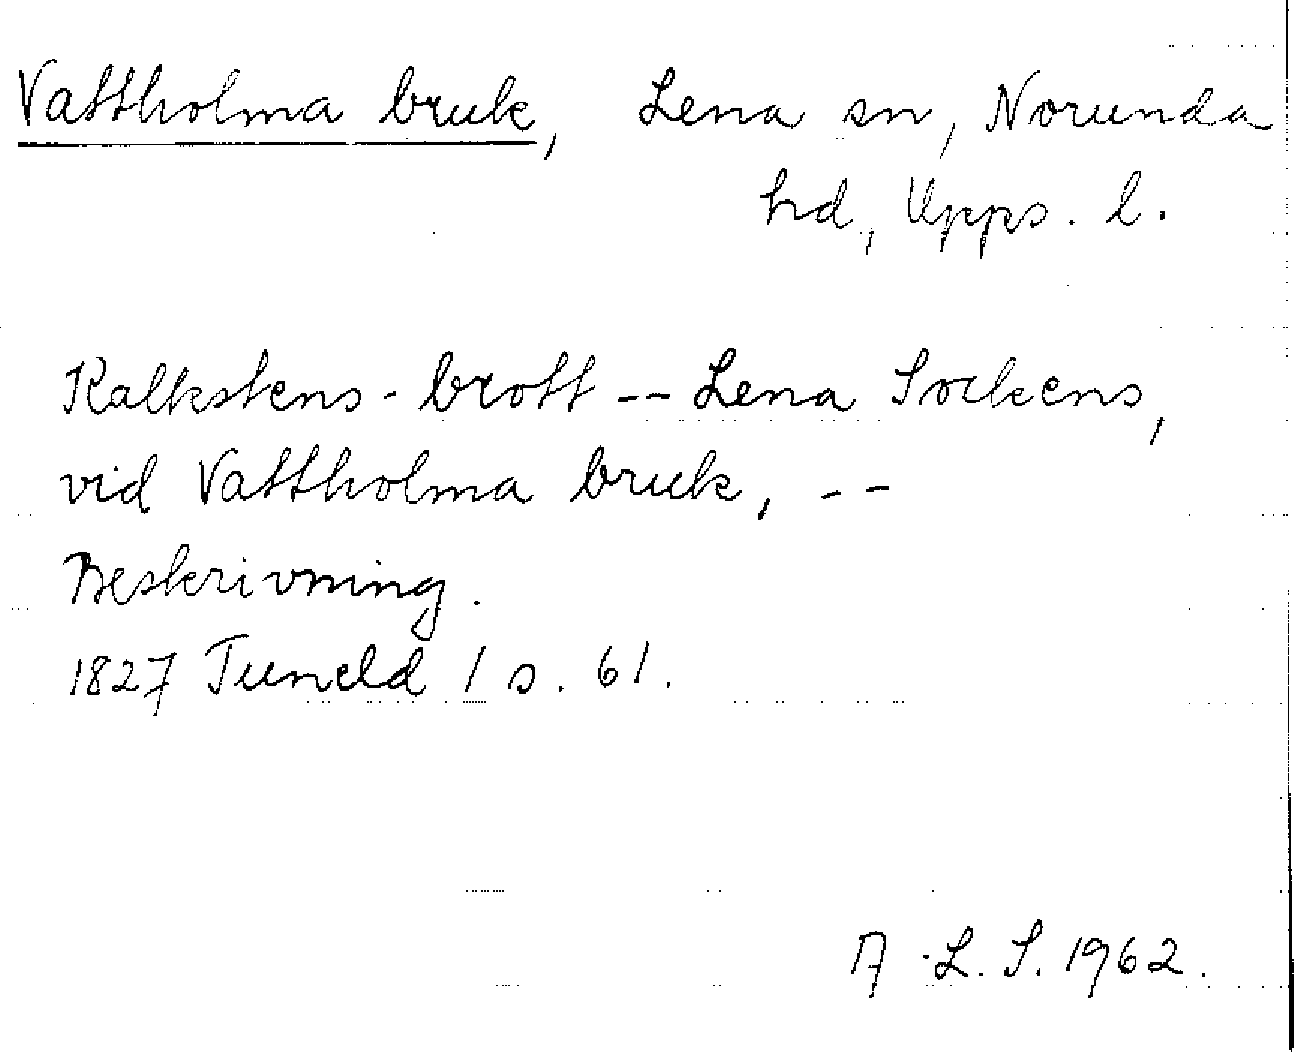 Vattholma bruk, Lena sn, Norunda
hd, Upps. l.
Kalkstens-brott -- Lena Sockens,
vid Vattholma bruk, --
Beskrivning.
1827 Tuneld 1 s. 61.
A.L.S. 1962.